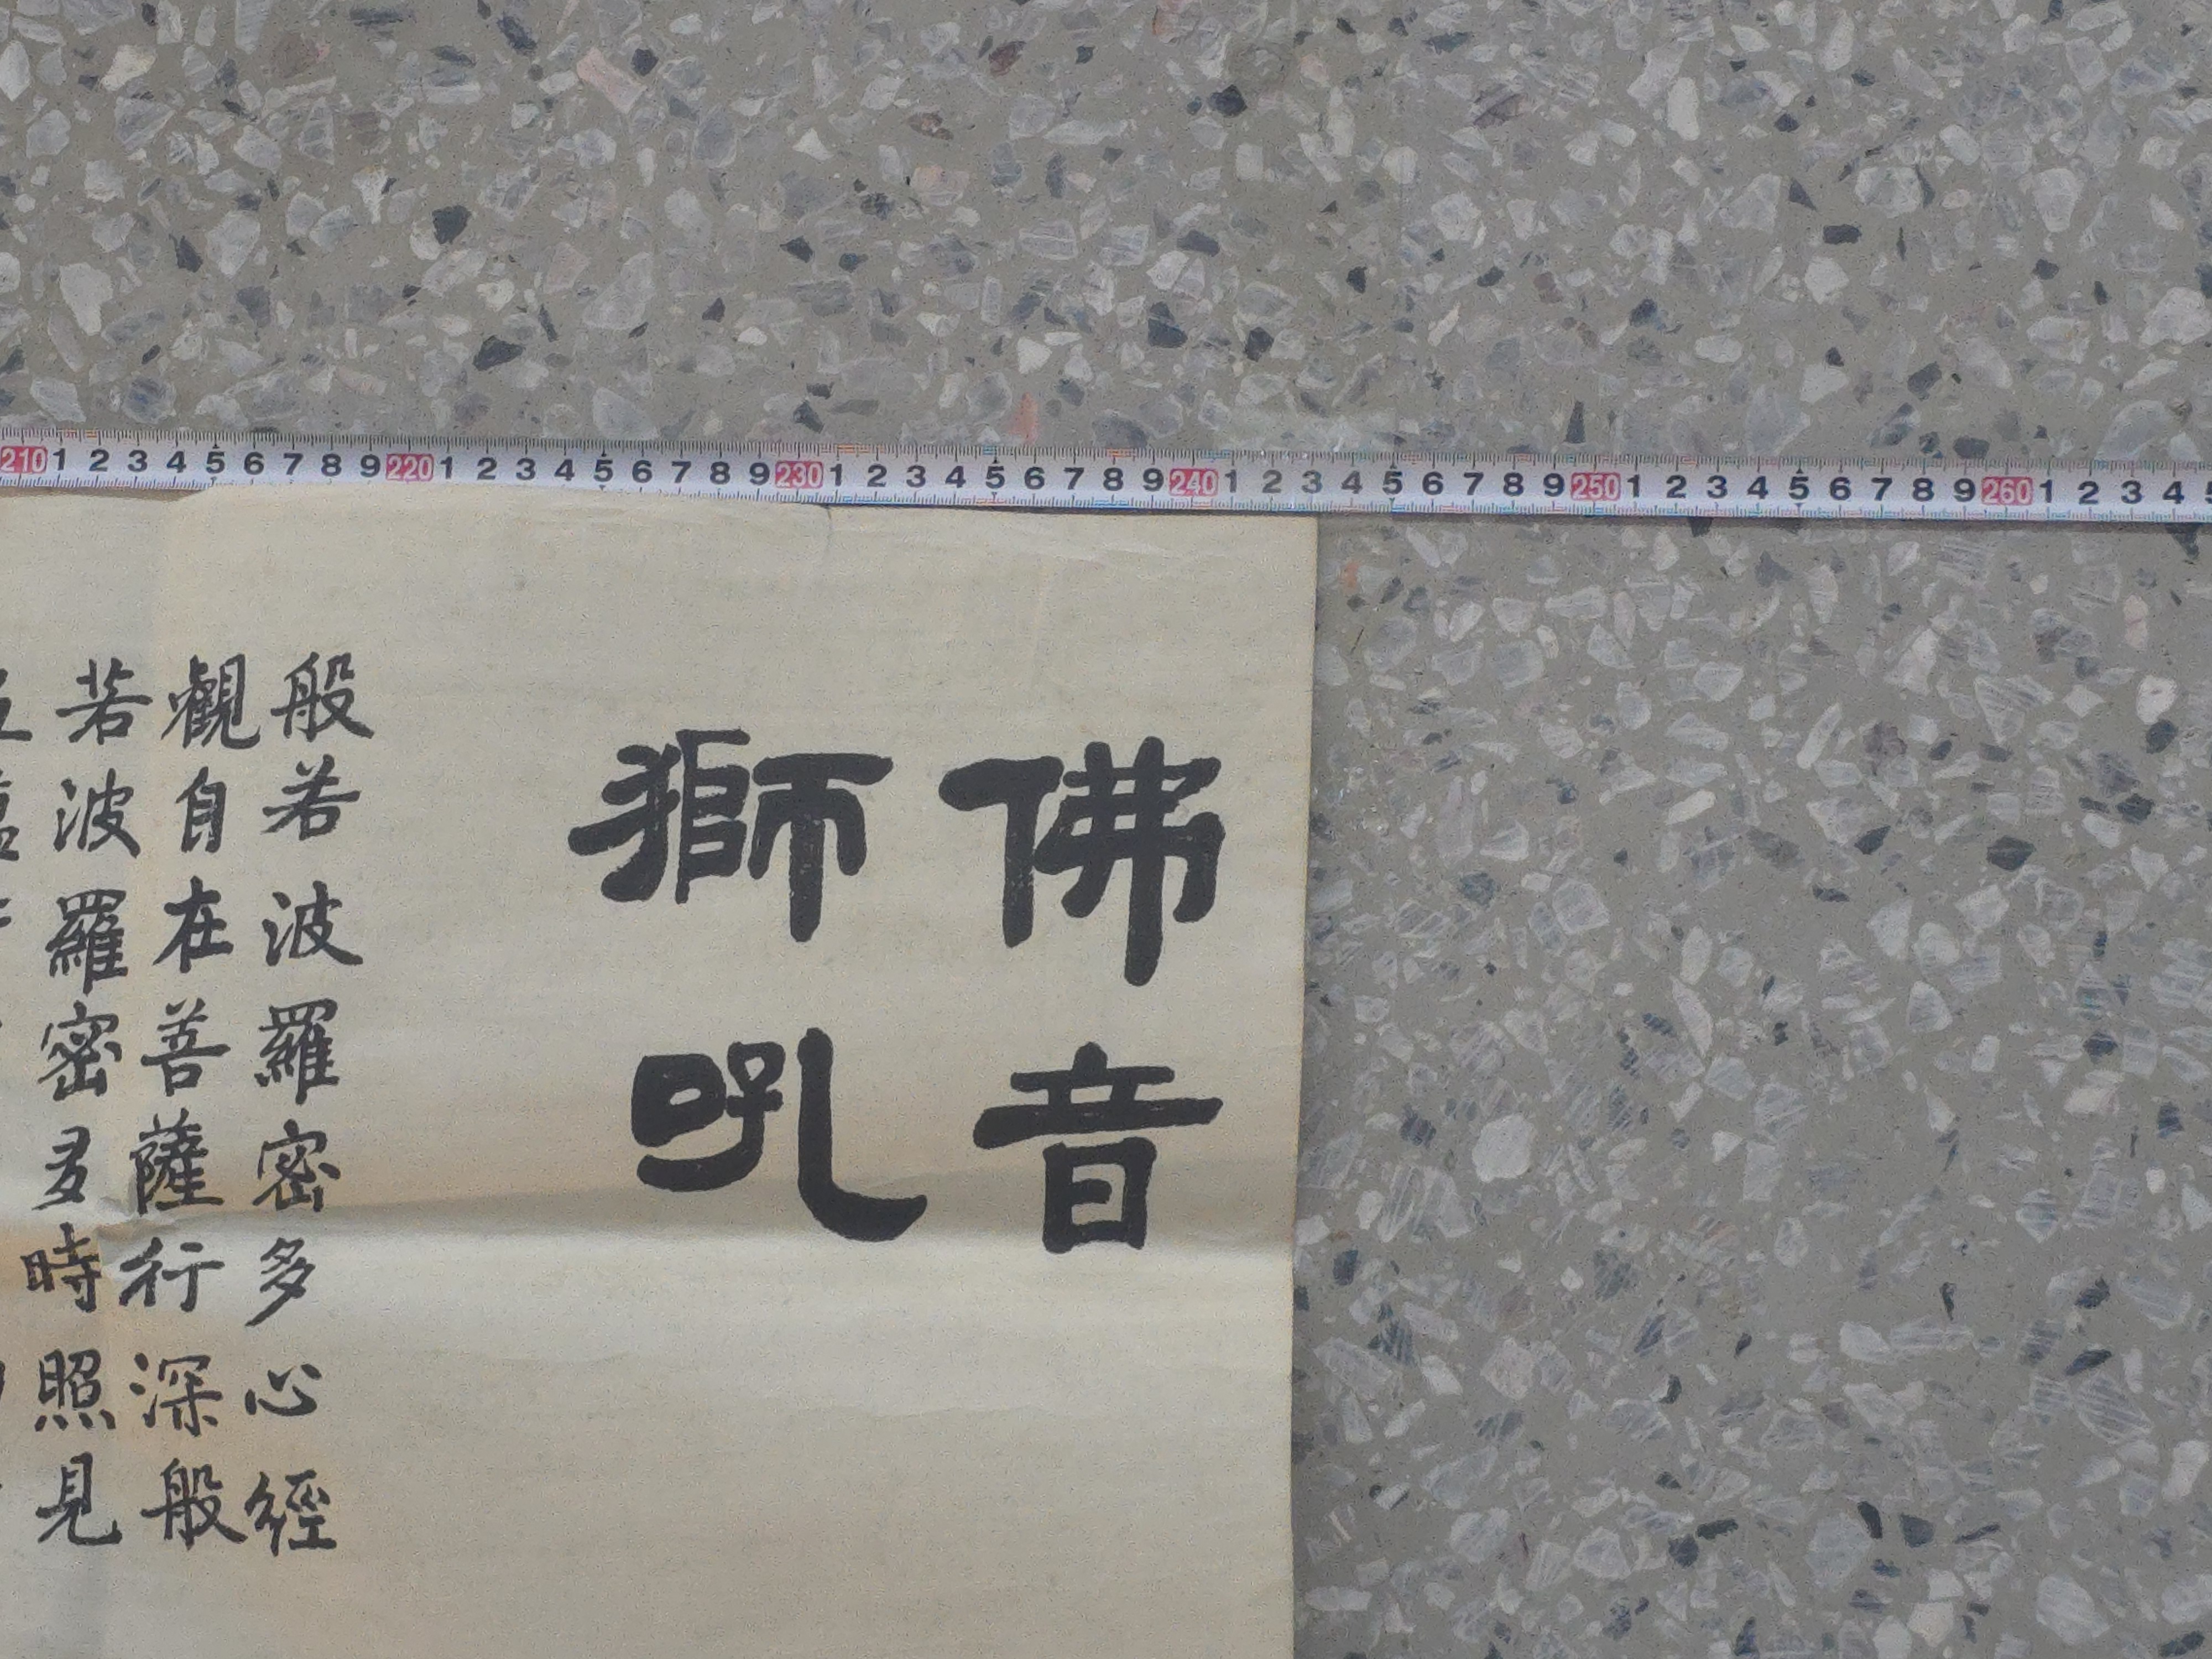 210 1 2 3 4 5 6 7 8 9 220 1 2 3 4 5 6 7 8 9 230 1 2 3 4 5 6 7 8 9 240 1 2 3 4 5 6 7 8 9 250 1 2 3 4 5 6 7 8 9 260 1 2 3 4
佛音
獅吼
般若波羅密多心經
觀自在菩薩行深般
若波羅密多時照見